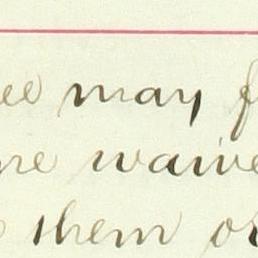 ee may f
ne waive
them or